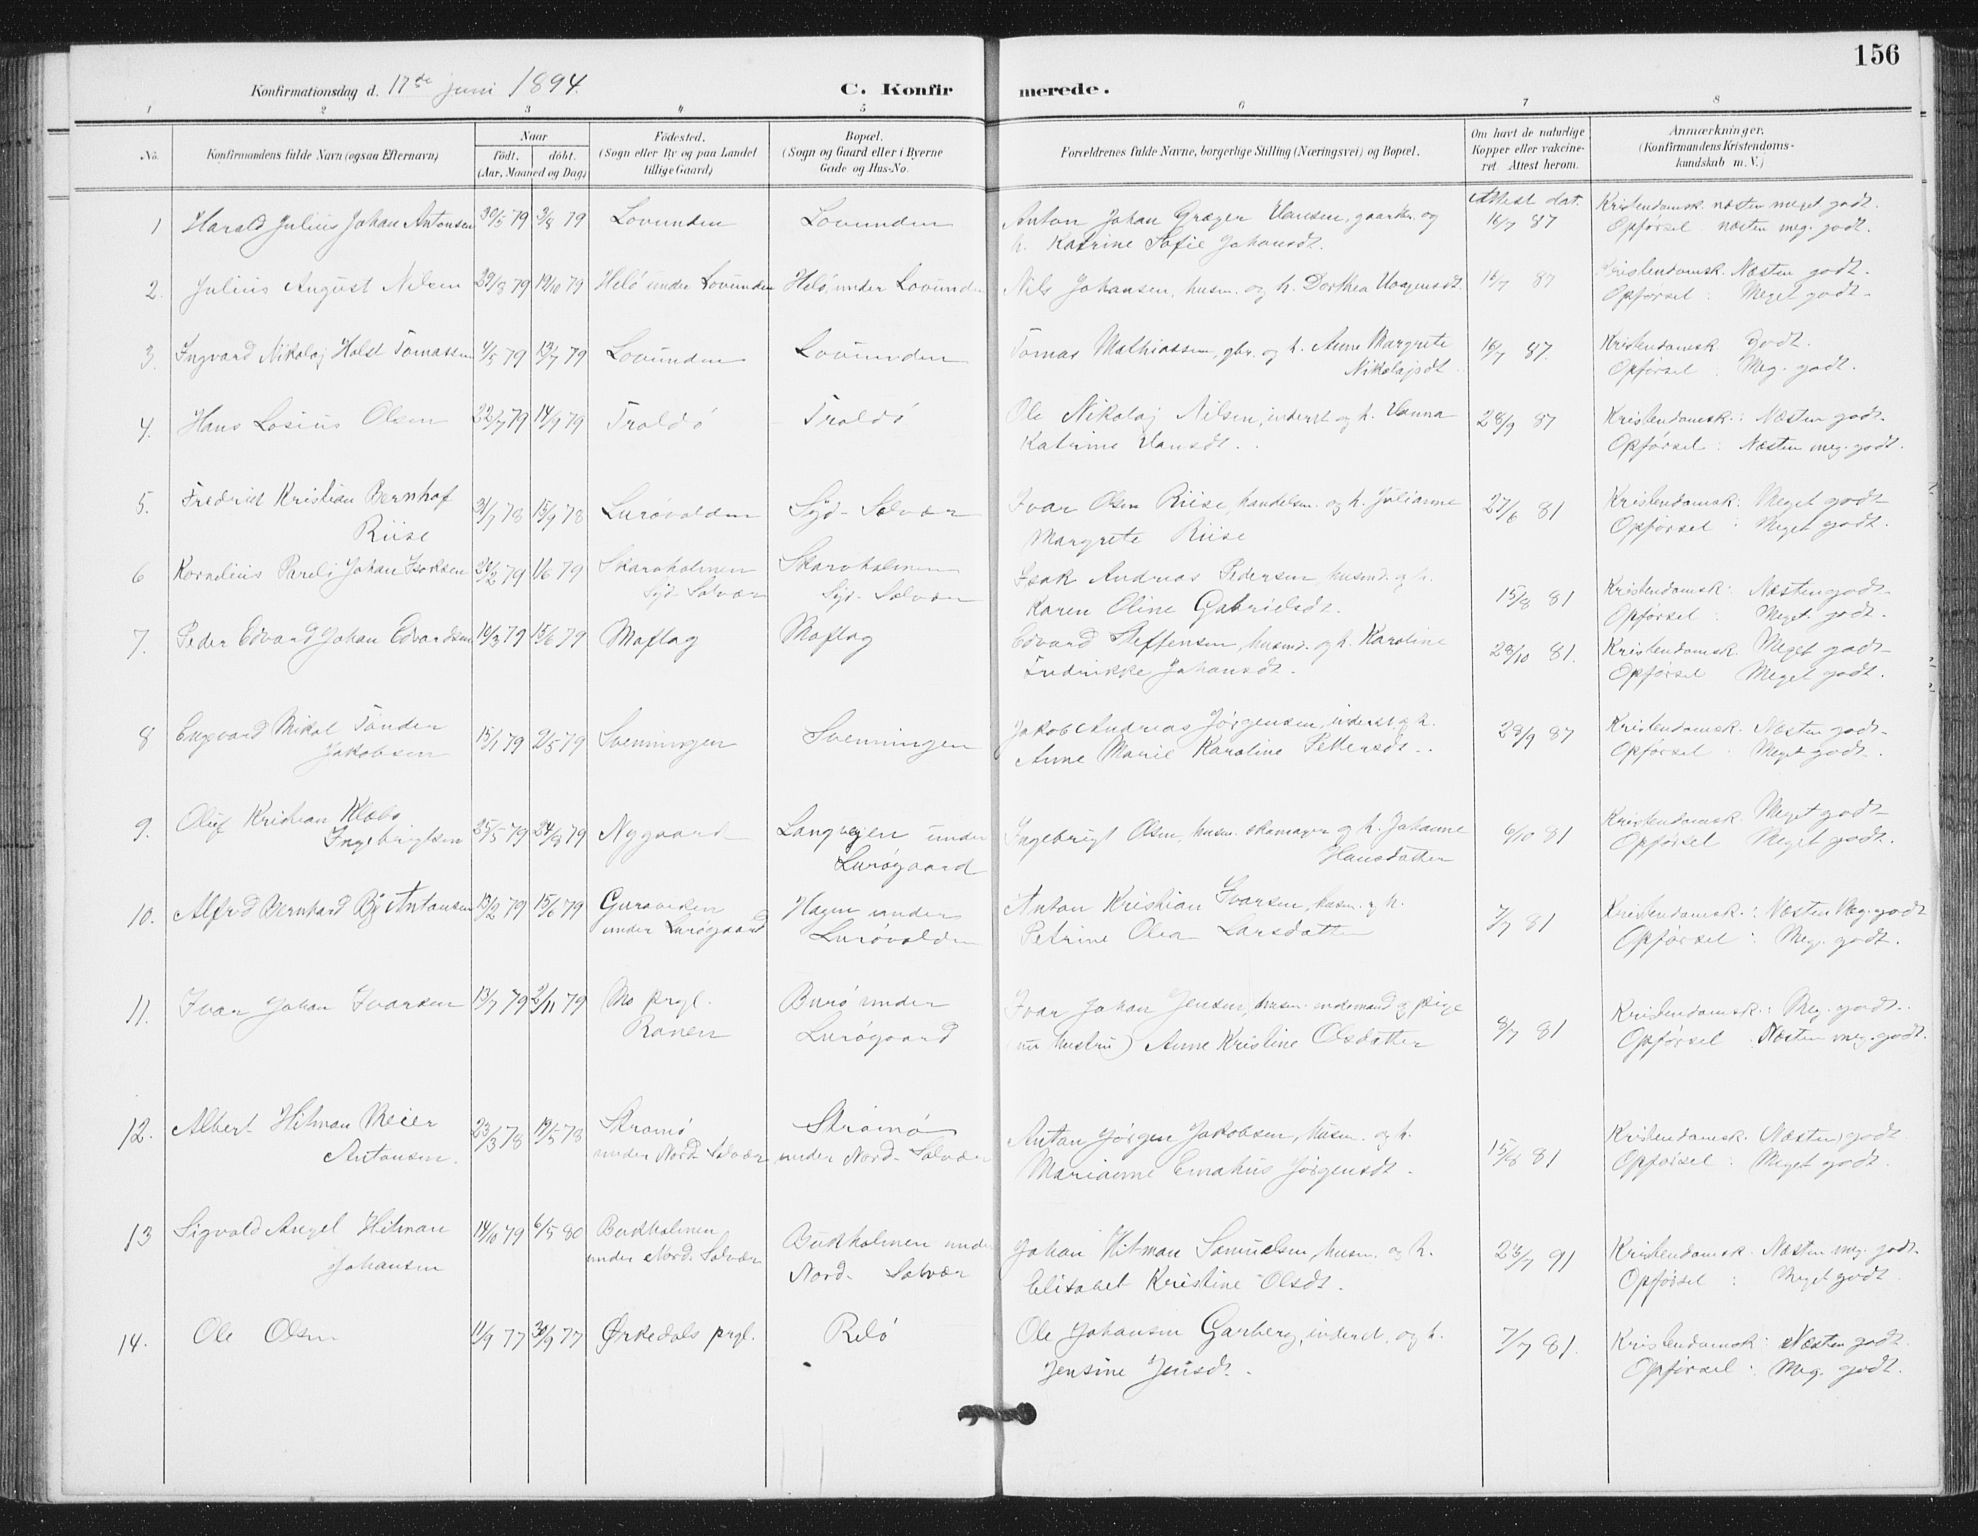 156
Konfirmationsdag d. 17de juni 1894. C. Konfirmerede.
1 2 3 4 5 6 7 8
No. Konfirmandens fulde Navn (ogsaa Efternavn) Naar födt. döbt. (Aar, Maaned og Dag) Födested. (Sogn eller By og paa Landet tillige Gaard) Bopæl. (Sogn og Gaard eller i Byerne Gade og Hus-No. Forældrenes fulde Navne, borgerlige Stilling (Næringsvei) og Bopæl. Om havt de naturlige Kopper eller vaccineret. Attest herom. Anmærkninger. (Konfirmandens Kristendomskundskab m. V.)
Attest dat.
1 Harald Julius Johan Antonsen 30/5 79 3/8 79 Lovunden Lovunden Anton Johan Græger Hansen, gaardbr. og 16/7 87 Kristendomsk. næsten meget godt.
h. Katrine Sofie Johansdt. Opførsel næsten meg. godt.
2. Julius August Nilsen 29/8 79 19/10 79 Helö under Lovunden Helö, under Lovunden Nils Johansen, husm. og h. Dorthea 16/7 87 Kristendomsk. Næsten godt.
Opførsel: Meget godt.
3. Ingvard Nikolaj Holst Tomassen 4/5 79 13/7 79 Lovunden Lovunden Tomas Mathiassen, gbr. og h. Anne Margrete 16/7 87. Kristendomsk. Godt.
Nikolajsdt. Opførsel: Meg. godt.
4. Hans Losius Olsen 22/7 79 14/9 79 Troldö Troldö Ole Nikolaj Nilsen, inderst og h. Hanna 28/9 87 Kristendomsk.: Næsten godt.
Katrine Hansdt. Opførsel: Næsten meg. godt.
5. Fredrick Kristian Bernhof 31/7 78 15/9 78 Lurövolden Syd-Solvær Ivar Olsen Riise, handelsm. og h. Julianne 27/6 81 Kristendomsk: Meget godt
Riise Margrete Riise Opførsel: Meget godt.
6 Kornelius Pareli Johan Isaksen 1/6 79 Skarvholmen Skarvholmen Isak Andreas Pedersen husmd. og h. 15/8 81 Kristendomsk: Næsten godt
Syd-Solvær Syd-Solvær Karen Oline Gabrielsdt. Opførsel: Meget godt.
7. Peder Edvard Johan Edvardsen 14/3 79 15/6 79 Moflag Moflag Edvard Steffensen, husmd. og h. Karoline 28/10 81. Kristendomsk. Meget godt
Fredrikke Johansdt. Opførsel Meget godt.
8 Engvard Mikal Tönder 15/1 79 2/5 79 Svenningen Svenningen Jakob Andreas Jørgensen, inderst og h. 28/9 87 Kristendomsk. Næsten godt.
Jakobsen Anne Marie Karoline Pettersdt. Opførsel Meget godt.
9. Oluf Kristian Klæbo 25/5 79 24/8 79 Nygaard Langvejen under Ingebrigt Olsen, husm. skomager og h. Johanne 6/10 81 Kristendomsk Meget godt
Ingebrigtsen Lurøgaard Hansdatter Opførsel Meget godt.
10. Alfred Bernhard Bg Antonsen 13/2 79 15/6 79 under Lurøgaard Hagen under Lurøvolden Anton Kristian Ivarsen, husm. og h. 7/7 81 Kristendomsk.: Næsten Meg. godt
Petrine Olea Larsdatter Opførsel: Meg. godt.
11. Ivar Johan Ivarsen 13/7 79 2/11 79 Mo prgl. Burö under Ivar Johan Jensen, husm. enkemand og pige 8/7 81 Kristendomsk.: Meg. godt.
Ranen Lurøgaard (nu hustru) Anne Kristine Olsdatter Opførsel: Næsten meg. godt.
12. Albert Hitman Meier 23/3 78 19/5 78 Strømø Strømø Anton Jørgen Jakobsen, husm. og h. 15/8 81 Kristendomsk. Næsten godt
Antonsen. under Nord-Solvær under Nord-Solvær Marianne Emahus Jørgensdt. Opførsel: Meget godt.
13 Sigvald Angel Hitman 14/10 79 6/5 80 Bukholmen Bukholmen under Johan Hitman Samuelsen, husm. og h. 23/7 91 Kristendomsk. Næsten meg. godt.
Johansen under Nord. Solvær Nord-Solvær Elisabet Kristine Olsdt. Opførsel: Meget godt.
14. Ole Olsen 11/9 77 30/9 77 Ørkedals prgl. Relö Ole Johansen Garberg, inderst, og h. 7/7 81. Kristendomsk: Næsten godt.
Jensine Jensdt. Opførsel: Meg. godt.